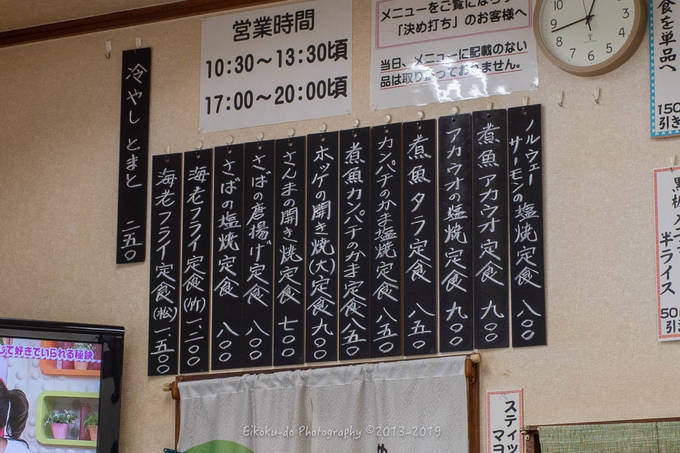 営業時間
10:30〜13:30頃
17:00〜20:00頃
メニューをご覧になら
「決め打ち」のお客様へ
当日、メニューに記載のない
品は取り扱っておりません。
を単品へ
150
引き
ノルウェーサーモンの塩焼定食 九〇〇
煮魚アカウオ定食 九〇〇
アカウオの塩焼定食 九〇〇
煮魚タラ定食 八五〇
カンパチのかま塩焼定食 八五〇
煮魚カンパチのかま定食 八五〇
ホッケの開き焼(大)定食 九〇〇
さんまの開き焼定食 七〇〇
さばの唐揚げ定食 八〇〇
さばの塩焼定食 八〇〇
海老フライ定食(竹) 一、二〇〇
海老フライ定食(松) 一、五五〇
冷やしとまと 二五〇
半ライス
50
引き
スティッ
マヨ
して好きでいられる秘訣
Eikoku-do Photography ©2013-2019